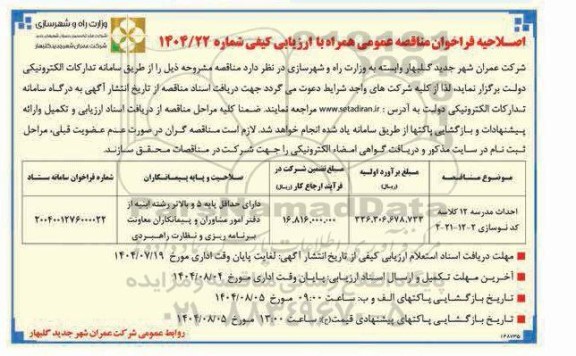 وزارت راه و شهرسازی
شرکت عمران شهر جدید گلبهار
اصلاحیه فراخوان مناقصه عمومی همراه با ارزیابی کیفی شماره ۱۴۰۴/۲۲
شرکت عمران شهر جدید گلبهار وابسته به وزارت راه و شهرسازی در نظر دارد مناقصه مشروحه ذیل را از طریق سامانه تدارکات الکترونیکی
دولت برگزار نماید، لذا از کلیه شرکت های واجد شرایط دعوت می گردد جهت دریافت اسناد مناقصه از تاریخ انتشار آگهی به درگاه سامانه
تدارکات الکترونیکی دولت به آدرس : www.setadiran.ir مراجعه نمایند. ضمنا کلیه مراحل مناقصه از دریافت اسناد ارزیابی و تکمیل وارائه
پیشنهادات و بازگشایی پاکتها از طریق سامانه یاد شده انجام خواهد شد. لازم است مناقصه گران در صورت عدم عضویت قبلی، مراحل
ثبت نام در سایت مذکور و دریافت گواهی امضاء الکترونیکی را جهت شرکت در مناقصات محقق سازند.
موضوع مناقصه
مبلغ برآورد اولیه (ریال)
مبلغ تضمین شرکت در فرآیند ارجاع کار (ریال)
صلاحیت و پایه پیمانکاران
شماره فراخوان سامانه ستاد
احداث مدرسه ۱۲ کلاسه
کد نوسازی ۲-۱۲-۲۱-۴
۳۳۶,۳۰۶,۶۷۸,۷۳۳
۱۶,۸۱۶,۰۰۰,۰۰۰
دارای حداقل پایه ۵ و بالاتر رشته ابنیه از
دفتر امور مشاوران و پیمانکاران معاونت
برنامه ریزی و نظارت راهبردی
۲۰۰۴۰۰۱۲۷۶۰۰۰۰۲۲
مهلت دریافت اسناد استعلام ارزیابی کیفی از تاریخ انتشار آگهی: لغایت پایان وقت اداری مورخ ۱۴۰۴/۰۷/۱۹
آخرین مهلت تکمیل و ارسال اسناد ارزیابی: پایان وقت اداری مورخ ۱۴۰۴/۰۸/۰۴
تاریخ بازگشایی پاکتهای الف و ب: ساعت ۰۹:۰۰ مورخ ۱۴۰۴/۰۸/۰۵
تاریخ بازگشایی پاکتهای پیشنهادی قیمت(ج) ساعت ۱۳:۰۰ مورخ ۱۴۰۴/۰۸/۰۵
روابط عمومی شرکت عمران شهر جدید گلبهار